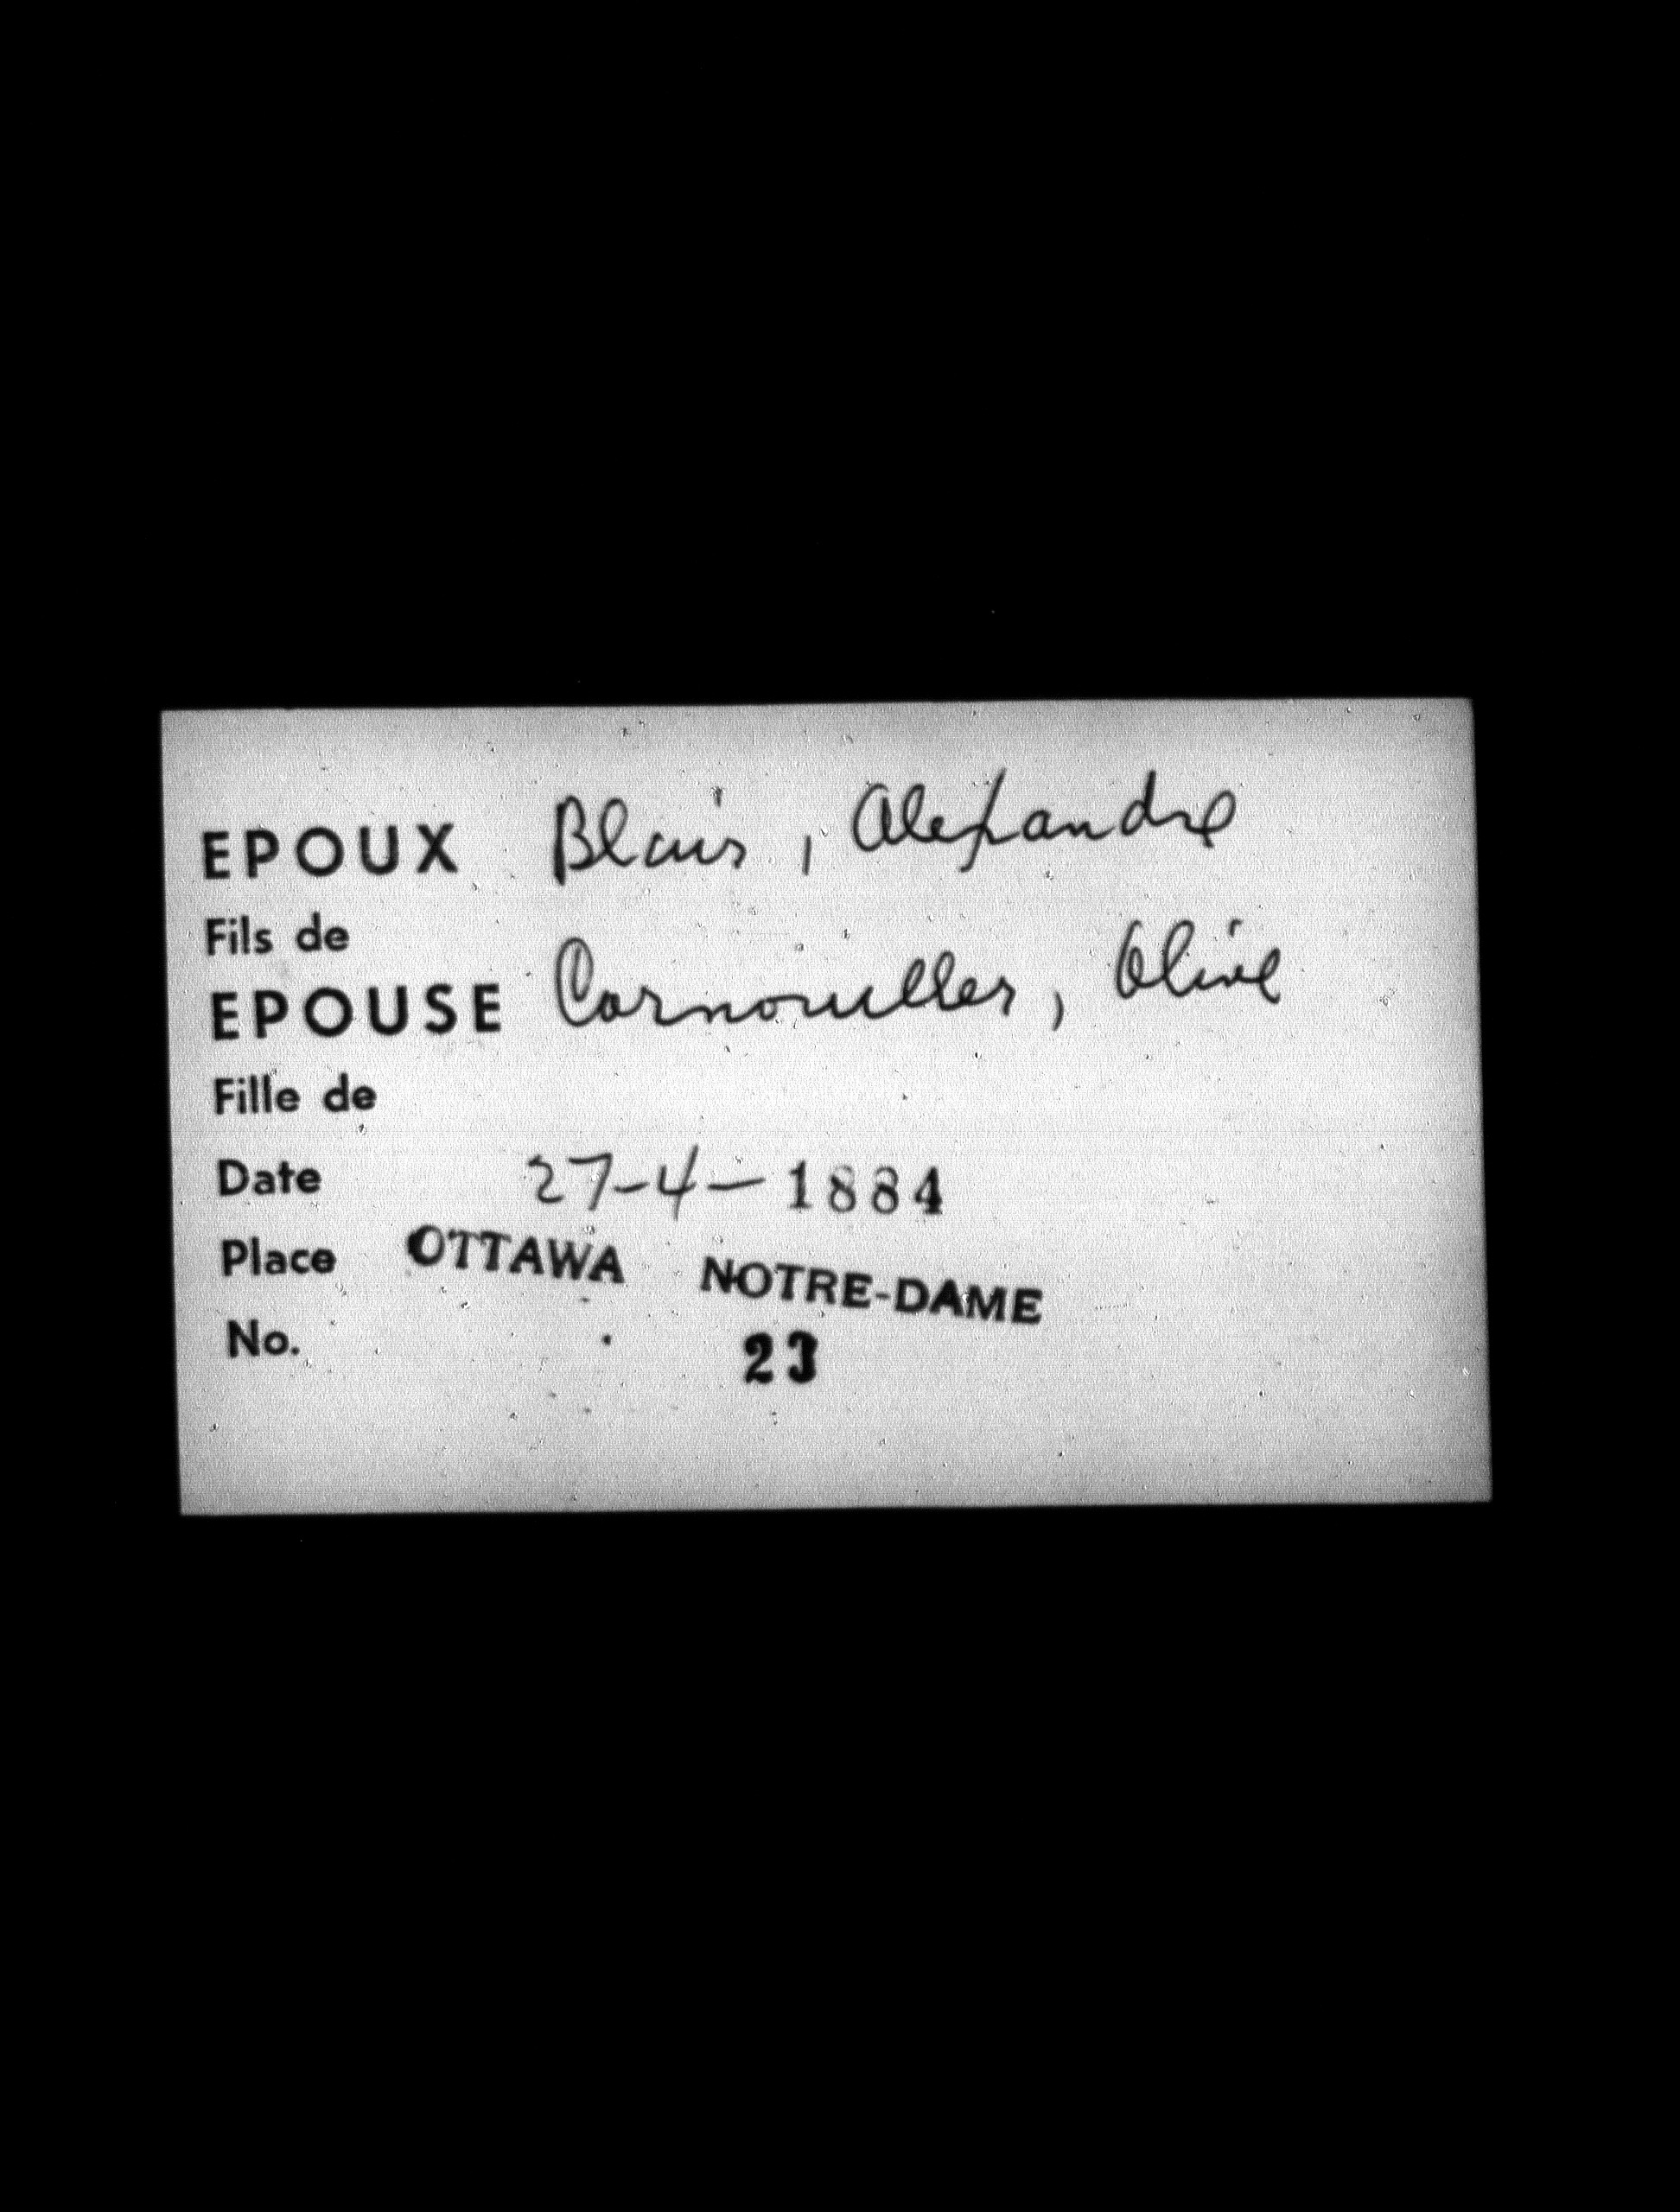 EPOUX Blais, Alexandre
Fils de
EPOUSE Cornouiller, Olive
Fille de
Date 27-4-1884
Place OTTAWA NOTRE-DAME
No. 23